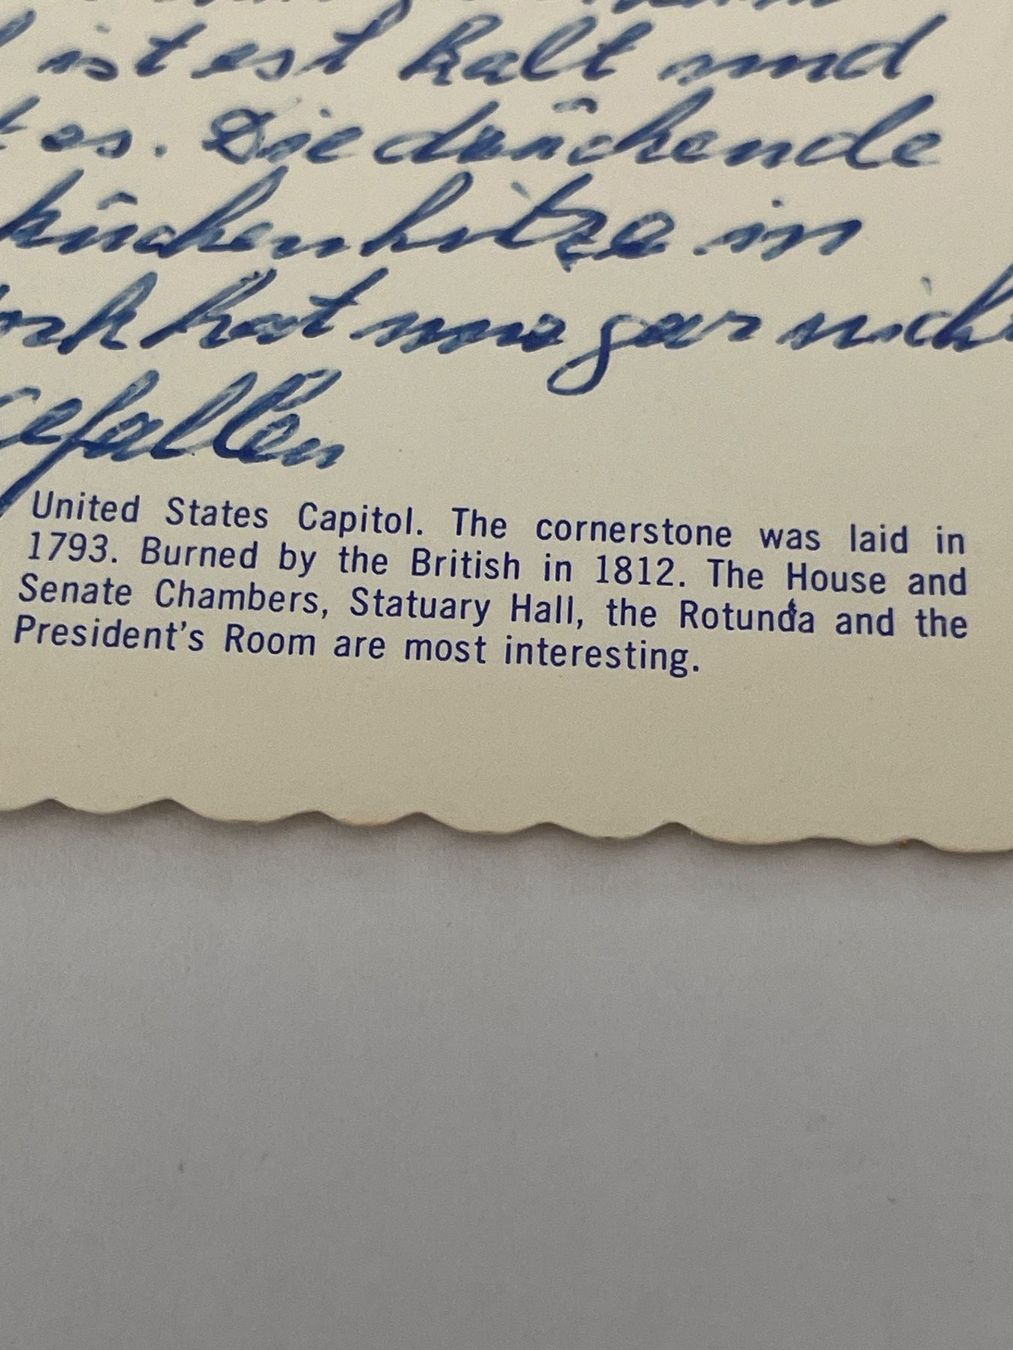 ist est kalt und
es. Die drückende
küchenhitze in
ork hat uns gar nich
gefallen
United States Capitol. The cornerstone was laid in
1793. Burned by the British in 1812. The House and
Senate Chambers, Statuary Hall, the Rotunda and the
President's Room are most interesting.